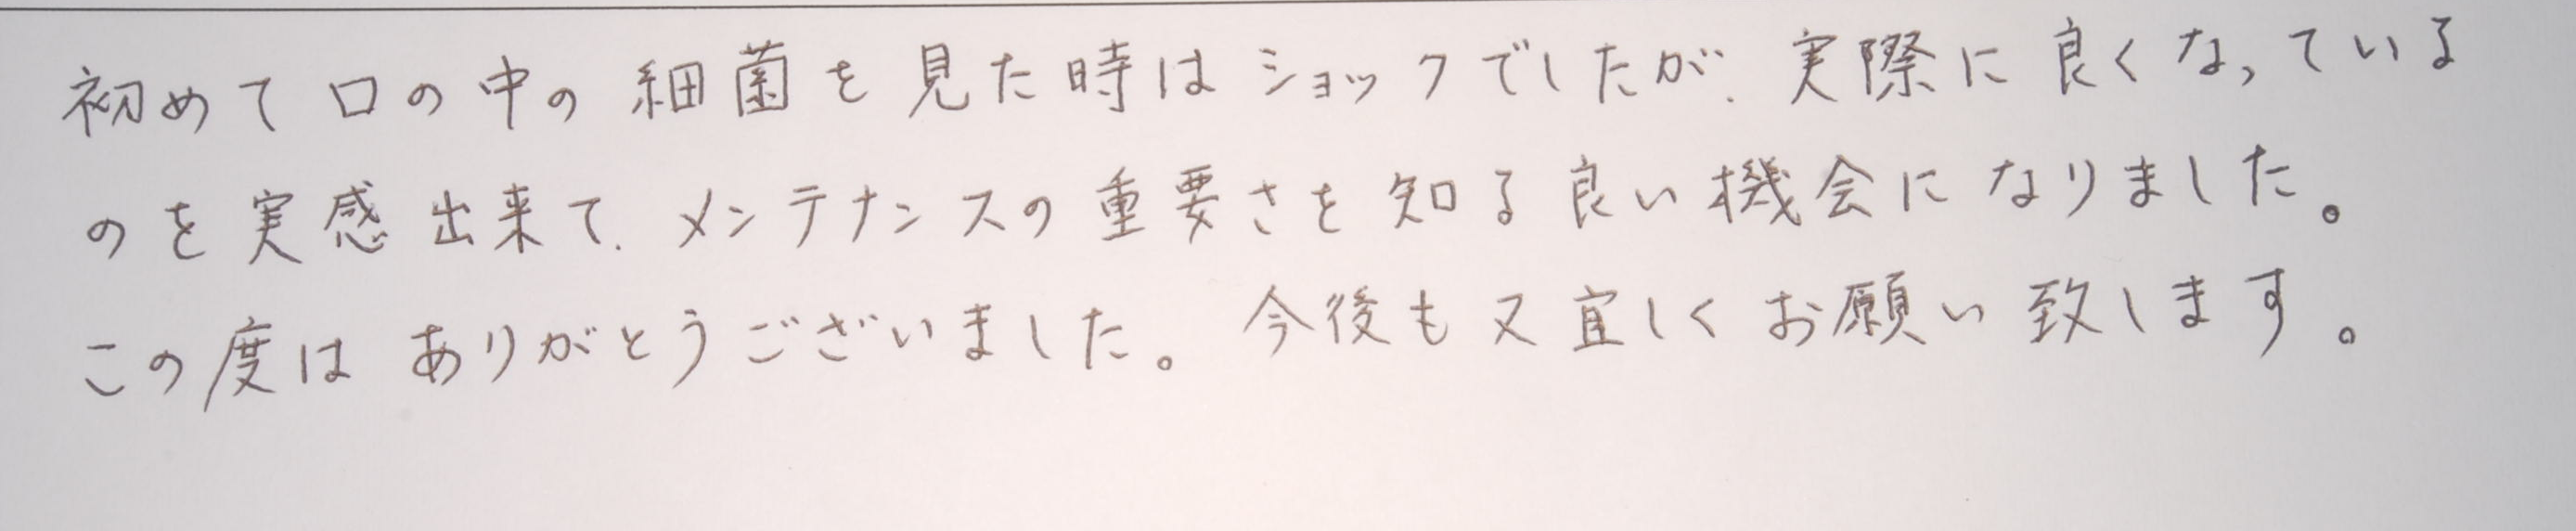 初めて口の中の細菌を見た時はショックでしたが、実際に良くなっている
のを実感出来て、メンテナンスの重要さを知る良い機会になりました。
この度はありがとうございました。今後も又宜しくお願い致します。